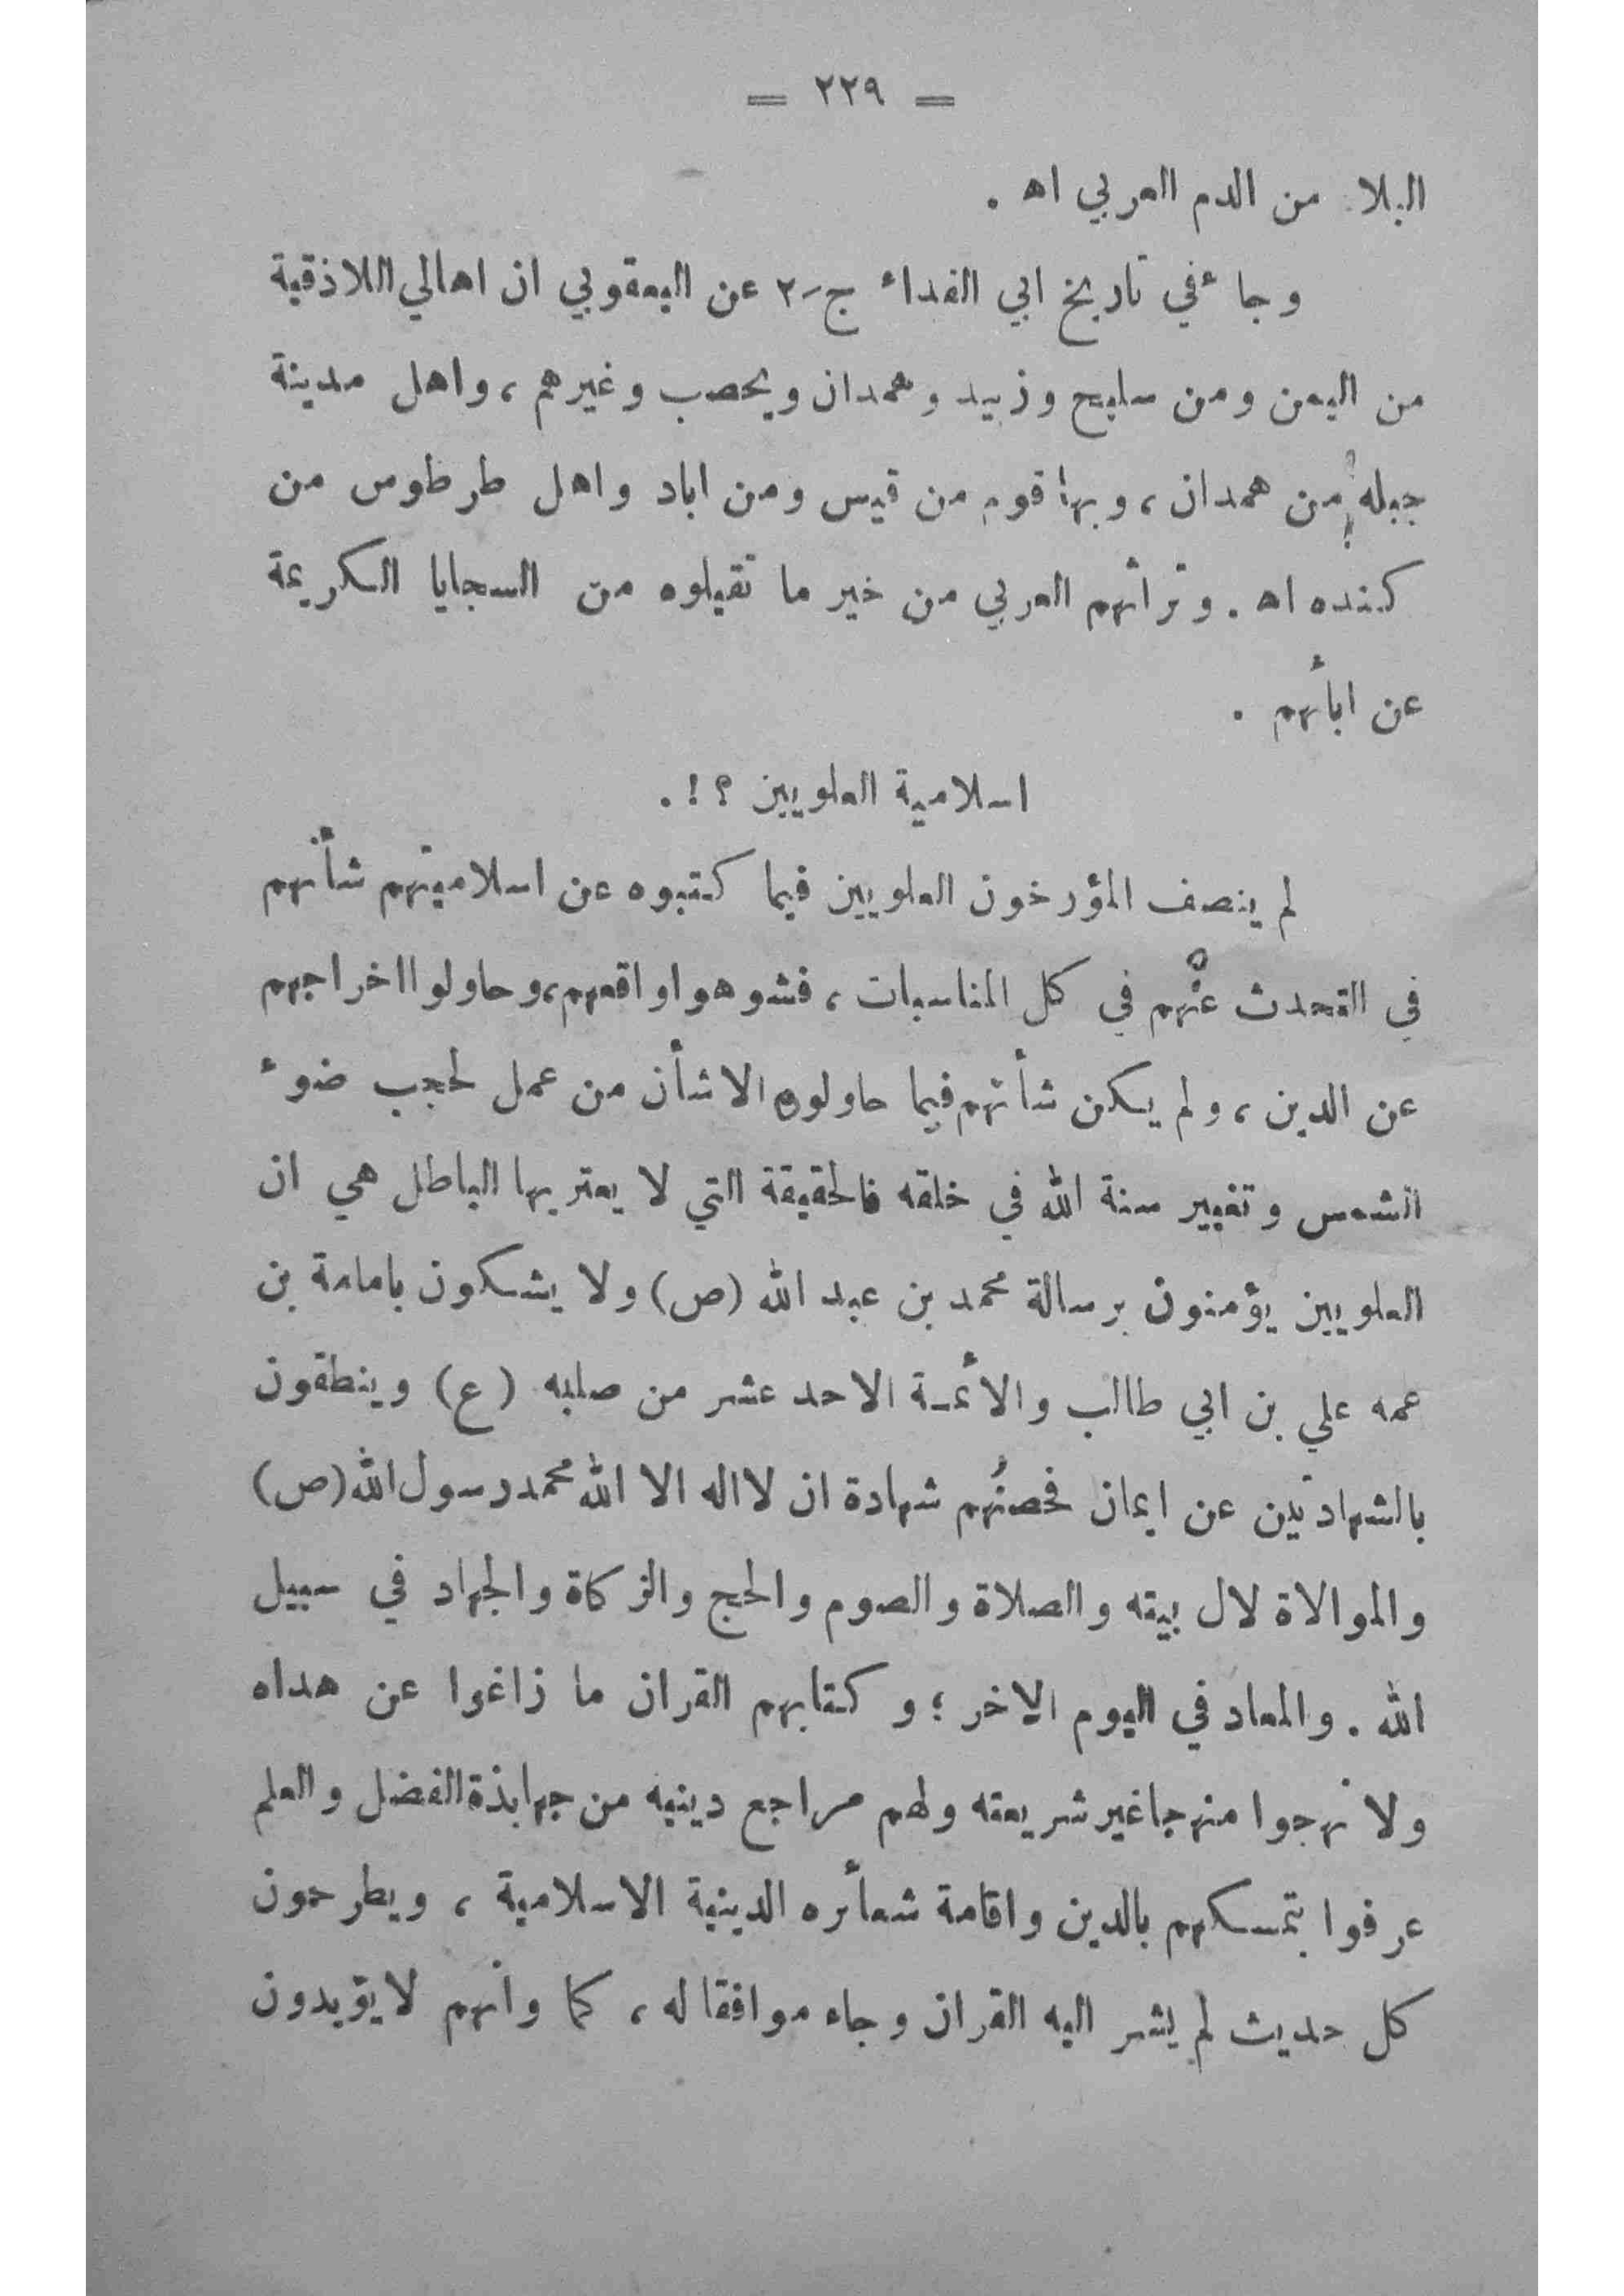 = ٢٢٩ =
البلا من الدم العربي اه .
وجاء في تاريخ ابي الفداء ج-٢ عن اليعقوبي ان اهالي اللاذقية
من اليمن ومن سليح وزبيد وهمدان ويحصب وغيرهم ، واهل مدينة
جبله من همدان ، وبها قوم من قيس ومن اياد واهل طرطوس من
كنده اه . وتراثهم العربي من خير ما تقيلوه من السجايا الكريمة
عن ابأئهم .
اسلامية العلويين ؟ ! .
لم ينصف المؤرخون العلويين فيما كتبوه عن اسلاميتهم شأنهم
في التحدث عنهم في كل المناسبات ، فشوهوا واقعهم، وحاولوا اخراجهم
عن الدين ، ولم يكن شأنهم فيما حاولوه الا شأن من عمل لحجب ضوء
الشمس وتغيير سنة الله في خلقه فالحقيقة التي لا يعتريها الباطل هي ان
العلويين يؤمنون برسالة محمد بن عبد الله (ص) ولا يشكون بامامة بن
عمه علي بن ابي طالب والأئمة الاحد عشر من صلبه (ع) وينطقون
بالشهادتين عن ايمان فحصنهم شهادة ان لا اله الا الله محمد رسول الله (ص)
والموالاة لال بيته والصلاة والصوم والحج والزكاة والجهاد في سبيل
الله . والمعاد في اليوم الاخر ؛ وكتابهم القران ما زاغوا عن هداه
ولا نهجوا منهجا غير شريعته ولهم مراجع دينيه من جهابذة الفضل والعلم
عرفوا بتمسكهم بالدين واقامة شعأئره الدينية الاسلامية ، ويطرحون
كل حديث لم يشر اليه القران وجاء موافقا له ، كما وأنهم لا يؤيدون